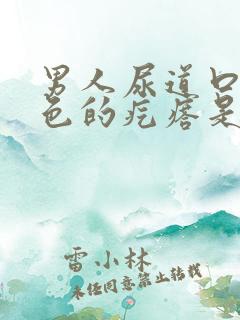 男人尿道口
色的疙瘩是
雷小林
未经同意禁止转载